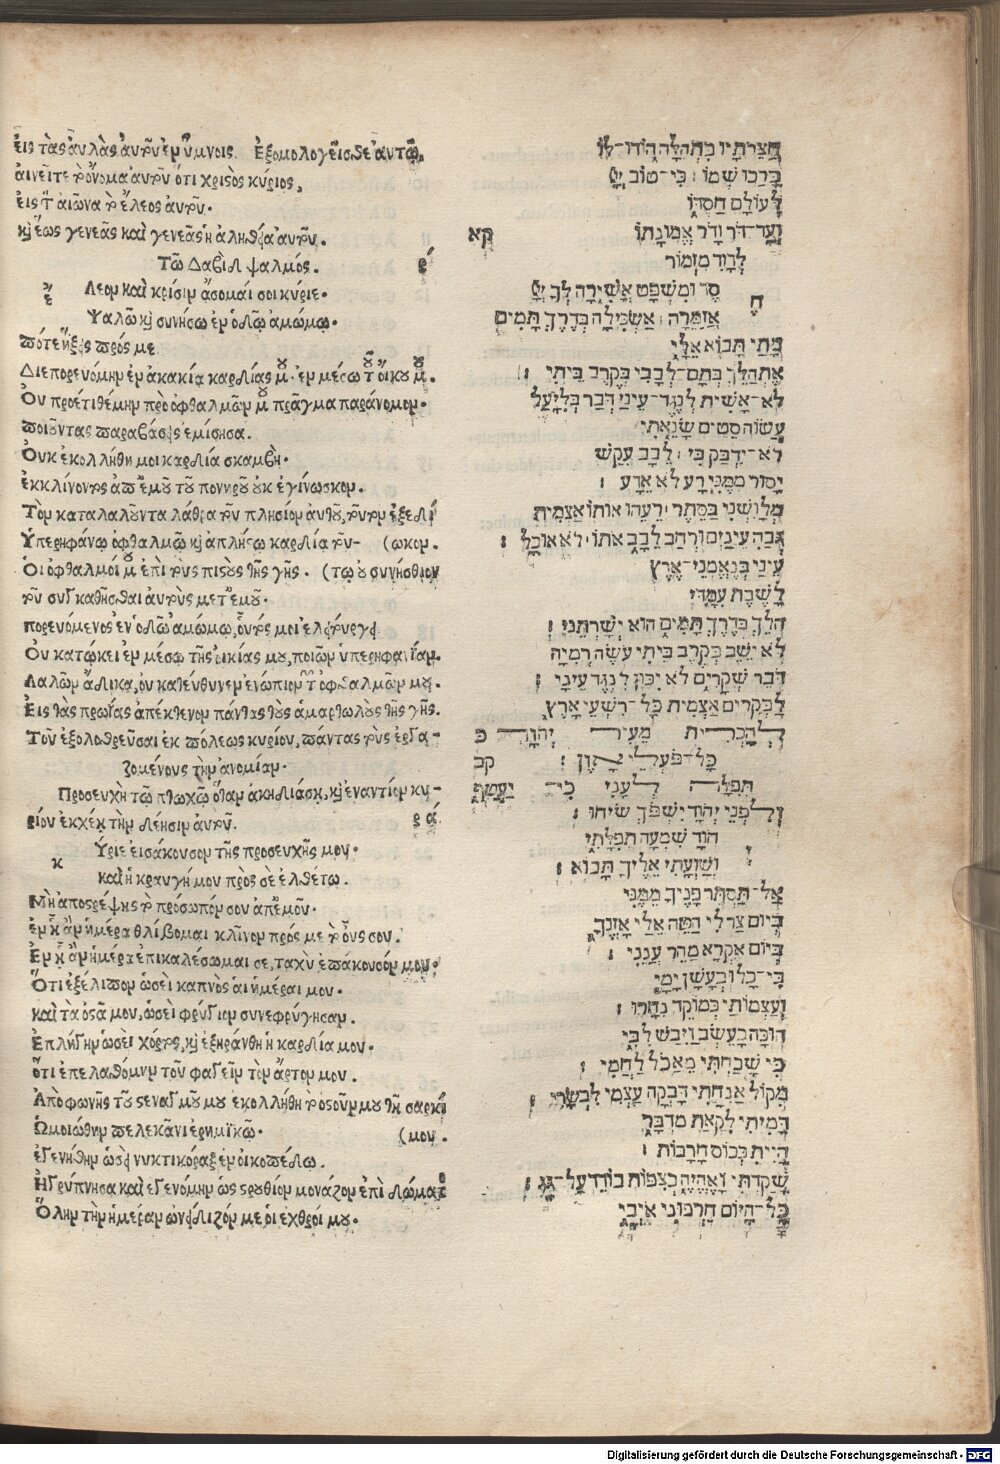 εἰς τὰς ἀυλὰς ἀυτοῦ ἐν ὕμνοις. Ἐξομολογεῖσθε ἀυτῷ,
ἀινεῖτε τὸ ὄνομα ἀυτοῦ ὅτι χρισὸς κύριος,
εἰς τὸν αἰῶνα τὸ ἔλεος ἀυτοῦ.
κὶ ἕως γενεᾶς καὶ γενεᾶς ἡ ἀλήθεια ἀυτοῦ.
Τῶ Δαβιλ ψαλμός. ρ
Λεον καὶ κρίσιν ἄσομαί σοι κύριε.
ἔ
Ψαλῶ κὶ συνήσω ἐν ὁδῶ ἀμώμω.
πότε ἥξεις πρός με
Διεπορενόμην ἐν ἀκακία καρδίας μου. ἐν μέσω τοῦ ὄικου μου.
Ὀυ προετιθέμην πρὸ ὀφθαλμῶν μου πρᾶγμα παράνομον.
ποιοῦντας παραβάσεις ἐμίσησα.
Ὀυκ ἐκολλήθη μοι καρδία σκαμβὴ.
ἐκκλίνοντος ἀπ ἐμοῦ τοῦ πονηροῦ ὀυκ ἐγίνωσκον.
Τὸν καταλαλοῦντα λάθρα τὸν πλησίον ἀυτοῦ, τοῦτον ἐξεδί
Ὑπερηφάνω ὀφθαλμῶ κὶ ἀπλήστω καρδία τού- (ωκον.
Ὁι ὀφθαλμοί μου ἐπὶ τοὺς πιστοὺς τῆς γῆς. (τω ὀυ συνήσθιον
τοῦ συγκαθῆσθαι ἀυτοὺς μετ ἐμοῦ.
πορευόμενος ἐν ὁδῶ ἀμώμω, ὁυτός μοι ἐλειτούργει
Ὀυ κατώκει ἐν μέσω τῆς ὀικίας μου, ποιῶν ὑπερηφανίαν.
Λαλῶν ἄδικα, ὀυ κατεύθυνεν ἐνώπιον τῶν ὀφθαλμῶν μου.
Εἰς τὰς πρωΐας ἀπέκτενον πάντας τοὺς ἁμαρτωλοὺς τῆς γῆς.
Τοῦ ἐξολοθρεῦσαι ἐκ πόλεως κυρίου, παντας τοὺς ἐργα-
ζομένους τὴν ἀνομίαν.
Προσευχὴ τῶ πτωχῶ ὅταν ἀκηδιάση, κὶ ἐναντίον κυ-
ρίου ἐκχέη τὴν δέησιν ἀυτοῦ. ρά
Ύριε ἐισάκουσον τῆς προσευχῆς μου.
κ
καὶ ἡ κραυγή μου πρὸς σὲ ἐλθέτω.
Μὴ ἀποστρέψης τὸ πρόσωπόν σου ἀπ ἐμοῦ.
ἐν ᾗ ἂν ἡμέρα θλίβομαι κλῖνον πρός με τὸ ὀῦς σου.
Ἐν ᾗ ἂν ἡμέρα ἐπικαλέσωμαι σε, ταχὺ ἐπάκουσόν μου.
Ὅτι ἐξέλιπον ὡσεὶ καπνὸς ἁι ἡμέραι μου.
καὶ τὰ ὀστᾶ μου, ὡσεὶ φρύγιον συνεφρύγησαν.
Ἐπλήγην ὡσεὶ χόρτος, κὶ ἐξηράνθη ἡ καρδία μου.
ὅτι ἐπελαθόμην τοῦ φαγεῖν τὸν ἄρτον μου.
Ἀπὸ φωνῆς τοῦ στεναγμοῦ μου ἐκολλήθη τὸ ὀστοῦν μου τῆ σαρκί
Ὡμοιώθην πελεκᾶνι ἐρημικῶ. (μου.
ἐγενήθην ὡσεὶ νυκτικόραξ ἐν ὀικοπέδω.
Ἠγρύπνησα καὶ ἐγενόμην ὡς στρουθίον μονάζον ἐπὶ δώματος
Ὅλην τὴν ἡμέραν ὠνείδιζόν με ὁι ἐχθροί μου.
חֲצֵרֹתָיו בִּתְהִלָּה הוֹדוּ־לוֹ
בָּרֲכוּ שְׁמוֹ׃ כִּי־טוֹב יְיָ
לְעוֹלָם חַסְדּוֹ
וְעַד־דֹּר וָדֹר אֱמוּנָתוֹ קא
לְדָוִד מִזְמוֹר
סֶד וּמִשְׁפָּט אָשִׁירָה לְךָ יְיָ
ח
אֲזַמֵּרָה׃ אַשְׂכִּילָה בְּדֶרֶךְ תָּמִים
מָתַי תָּבוֹא אֵלָי
אֶתְהַלֵּךְ בְּתָם־לְבָבִי בְּקֶרֶב בֵּיתִי׃
לֹא־אָשִׁית לְנֶגֶד־עֵינַי דְּבַר בְּלִיָּעַל
עֲשׂוֹה סֵטִים שָׂנֵאתִי
לֹא־יִדְבַּק בִּי׃ לֵבָב עִקֵּשׁ
יָסוּר מִמֶּנִּי רָע לֹא אֵדָע׃
מְלוֹשְׁנִי בַּסֵּתֶר׳ רֵעֵהוּ אוֹתוֹ אַצְמִית
גְּבַהּ עֵינַיִם וּרְחַב לֵבָב אֹתוֹ׳ לֹא אוּכָל׃
עֵינַי בְּנֶאֶמְנֵי־אֶרֶץ
לָשֶׁבֶת עִמָּדִי
הֹלֵךְ בְּדֶרֶךְ תָּמִים הוּא יְשָׁרְתֵנִי׃
לֹא יֵשֵׁב בְּקֶרֶב בֵּיתִי עֹשֵׂה רְמִיָּה
דֹּבֵר שְׁקָרִים לֹא יִכּוֹן לְנֶגֶד עֵינָי׃
לַבְּקָרִים אַצְמִית כָּל־רִשְׁעֵי אָרֶץ
לְהַכְרִית מֵעִיר יְהֹוָה
כָּל־פֹּעֲלֵי אָוֶן׃ קב
תְּפִלָּה לְעָנִי כִי־יַעֲטֹף
וְלִפְנֵי יְהוָה יִשְׁפֹּךְ שִׂיחוֹ׃
הֹוָה שִׁמְעָה תְפִלָּתִי
י
וְשַׁוְעָתִי אֵלֶיךָ תָּבוֹא׃
אַל־תַּסְתֵּר פָּנֶיךָ מִמֶּנִּי
בְּיוֹם צַר לִי הַטֵּה אֵלַי אָזְנֶךָ
בְּיוֹם אֶקְרָא מַהֵר עֲנֵנִי׃
כִּי־כָלוּ בְעָשָׁן יָמָי
וְעַצְמוֹתַי כְּמוֹקֵד נִחָרוּ׃
הוּכָּה כָעֵשֶׂב וַיִּבַשׁ לִבִּי
כִּי שָׁכַחְתִּי מֵאֲכֹל לַחְמִי׃
מִקּוֹל אַנְחָתִי דָּבְקָה עַצְמִי לִבְשָׂרִי׃
דָּמִיתִי לִקְאַת מִדְבָּר
הָיִיתִי כְּכוֹס חֳרָבוֹת׃
שָׁקַדְתִּי וָאֶהְיֶה כְצִפּוֹר בּוֹדֵד עַל־גָּג׃
כָּל־הַיּוֹם חֵרְפוּנִי אוֹיְבָי
Digitalisierung gefördert durch die Deutsche Forschungsgemeinschaft - DFG